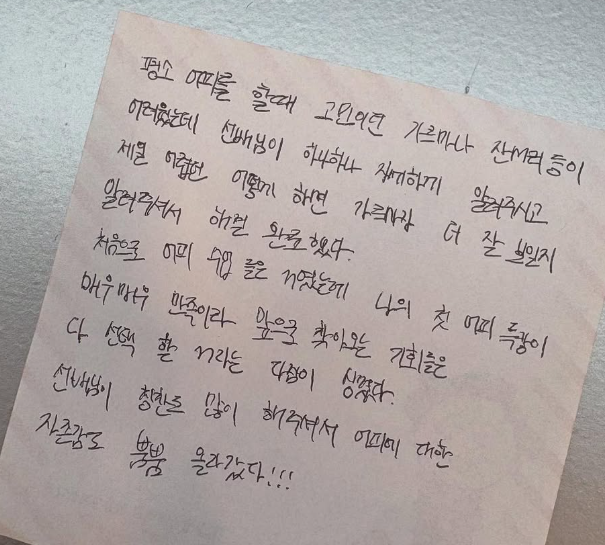 평소 어피를 할때 고민이던 가르마나 잔머리 등이
어려웠는데 선배님이 하나하나 자세하게 알려주시고
제일 어렵던 어떻게 해면 가르마가 더 잘 보일지
알려주셔서 해결 완료했다.
처음으로 어피 수업 들은 거였는데 나의 첫 어피 특강이
매우매우 만족이라 앞으로 찾아오는 기회들은
다 선택 할 거라는 다짐이 생겼다.
선배님이 칭찬을 많이 해주셔서 어피에 대한
자존감도 붐붐 올라갔다!!!